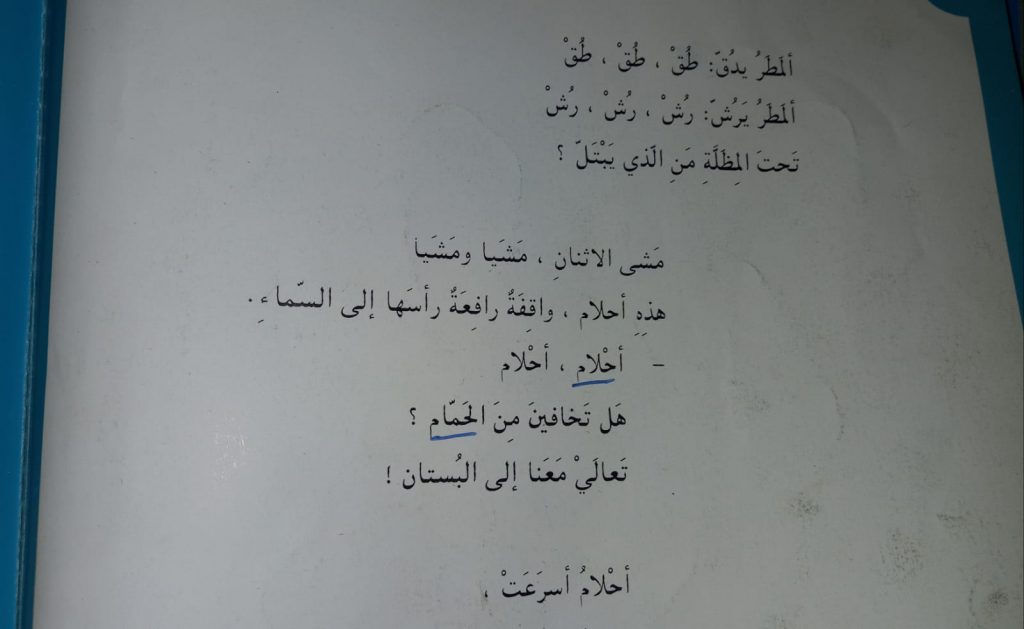 ألمَطَرُ يدُقّ: طُقْ ، طُقْ ، طُقْ
ألمَطَرُ يَرُشّ: رُشْ ، رُشْ ، رُشْ
تَحتَ المِظَلَّةِ مَنِ الَّذي يَبْتَلّ ؟
مَشى الاثنانِ ، مَشَيا ومَشَيا
هذِهِ أحلام ، واقِفَةٌ رافِعَةٌ رأسَها إلى السّماءِ.
– أحْلام ، أحْلام
هَل تَخافينَ مِنَ الحَمّام ؟
تَعالَيْ مَعَنا إلى البُستان !
أحْلامُ أسرَعَتْ ،